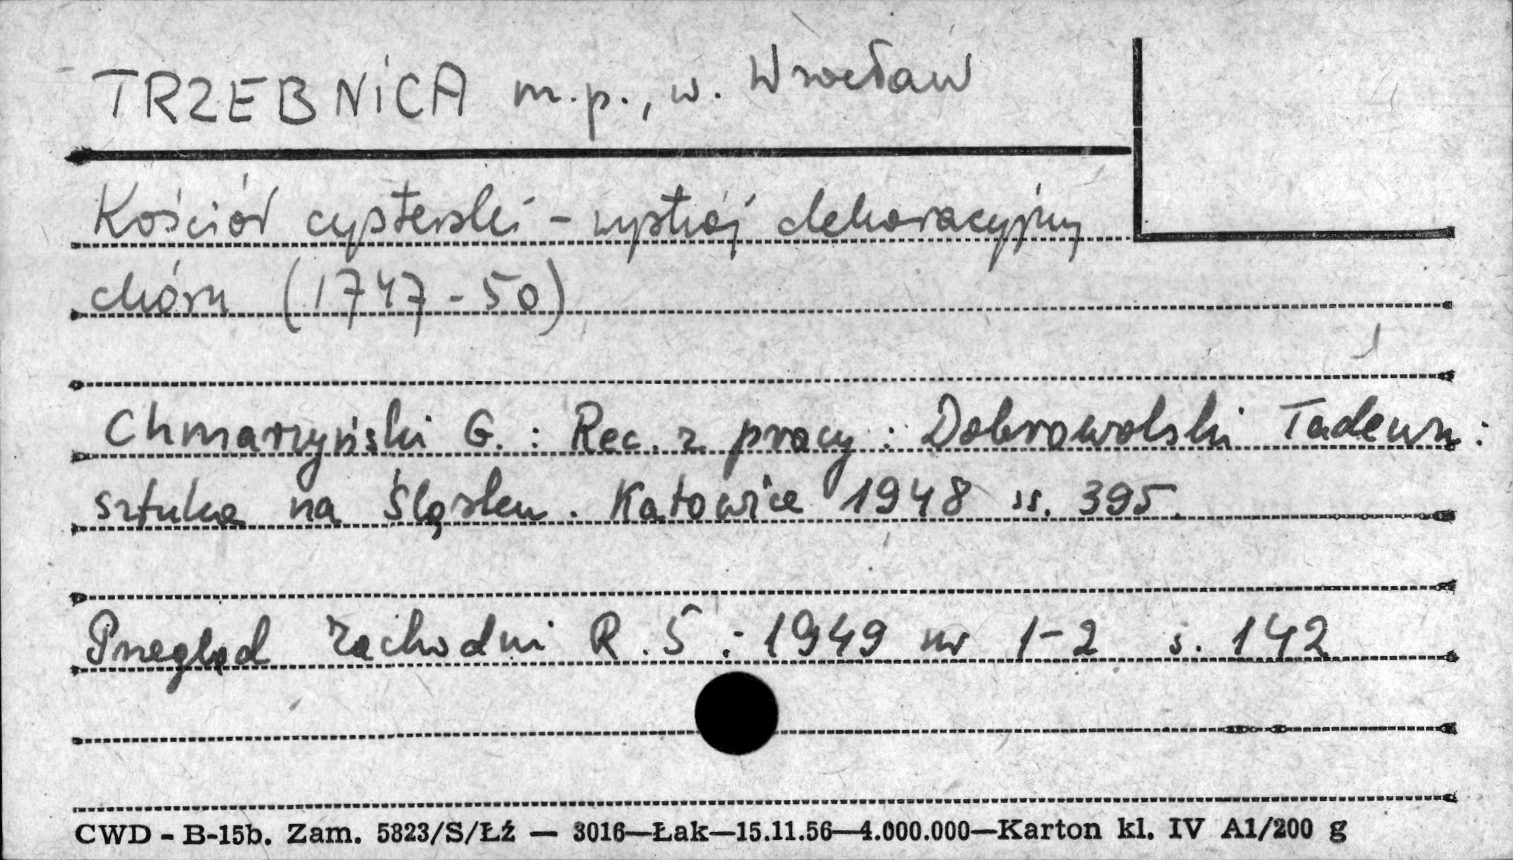 TRZEBNICA m.p., w. Wrocław
Kościół cysterski – wystrój dekoracyjny
chóru (1747-50)
Chmarzyński G. : Rec. z pracy : Dobrowolski Tadeusz :
sztuka na Śląsku. Katowice 1948 ss. 395.
Przegląd Zachodni R. 5 : 1949 nr 1-2 s. 142
CWD - B-15b. Zam. 5823/S/Łź — 3016—Łak—15.11.56—4.000.000—Karton kl. IV A1/200 g